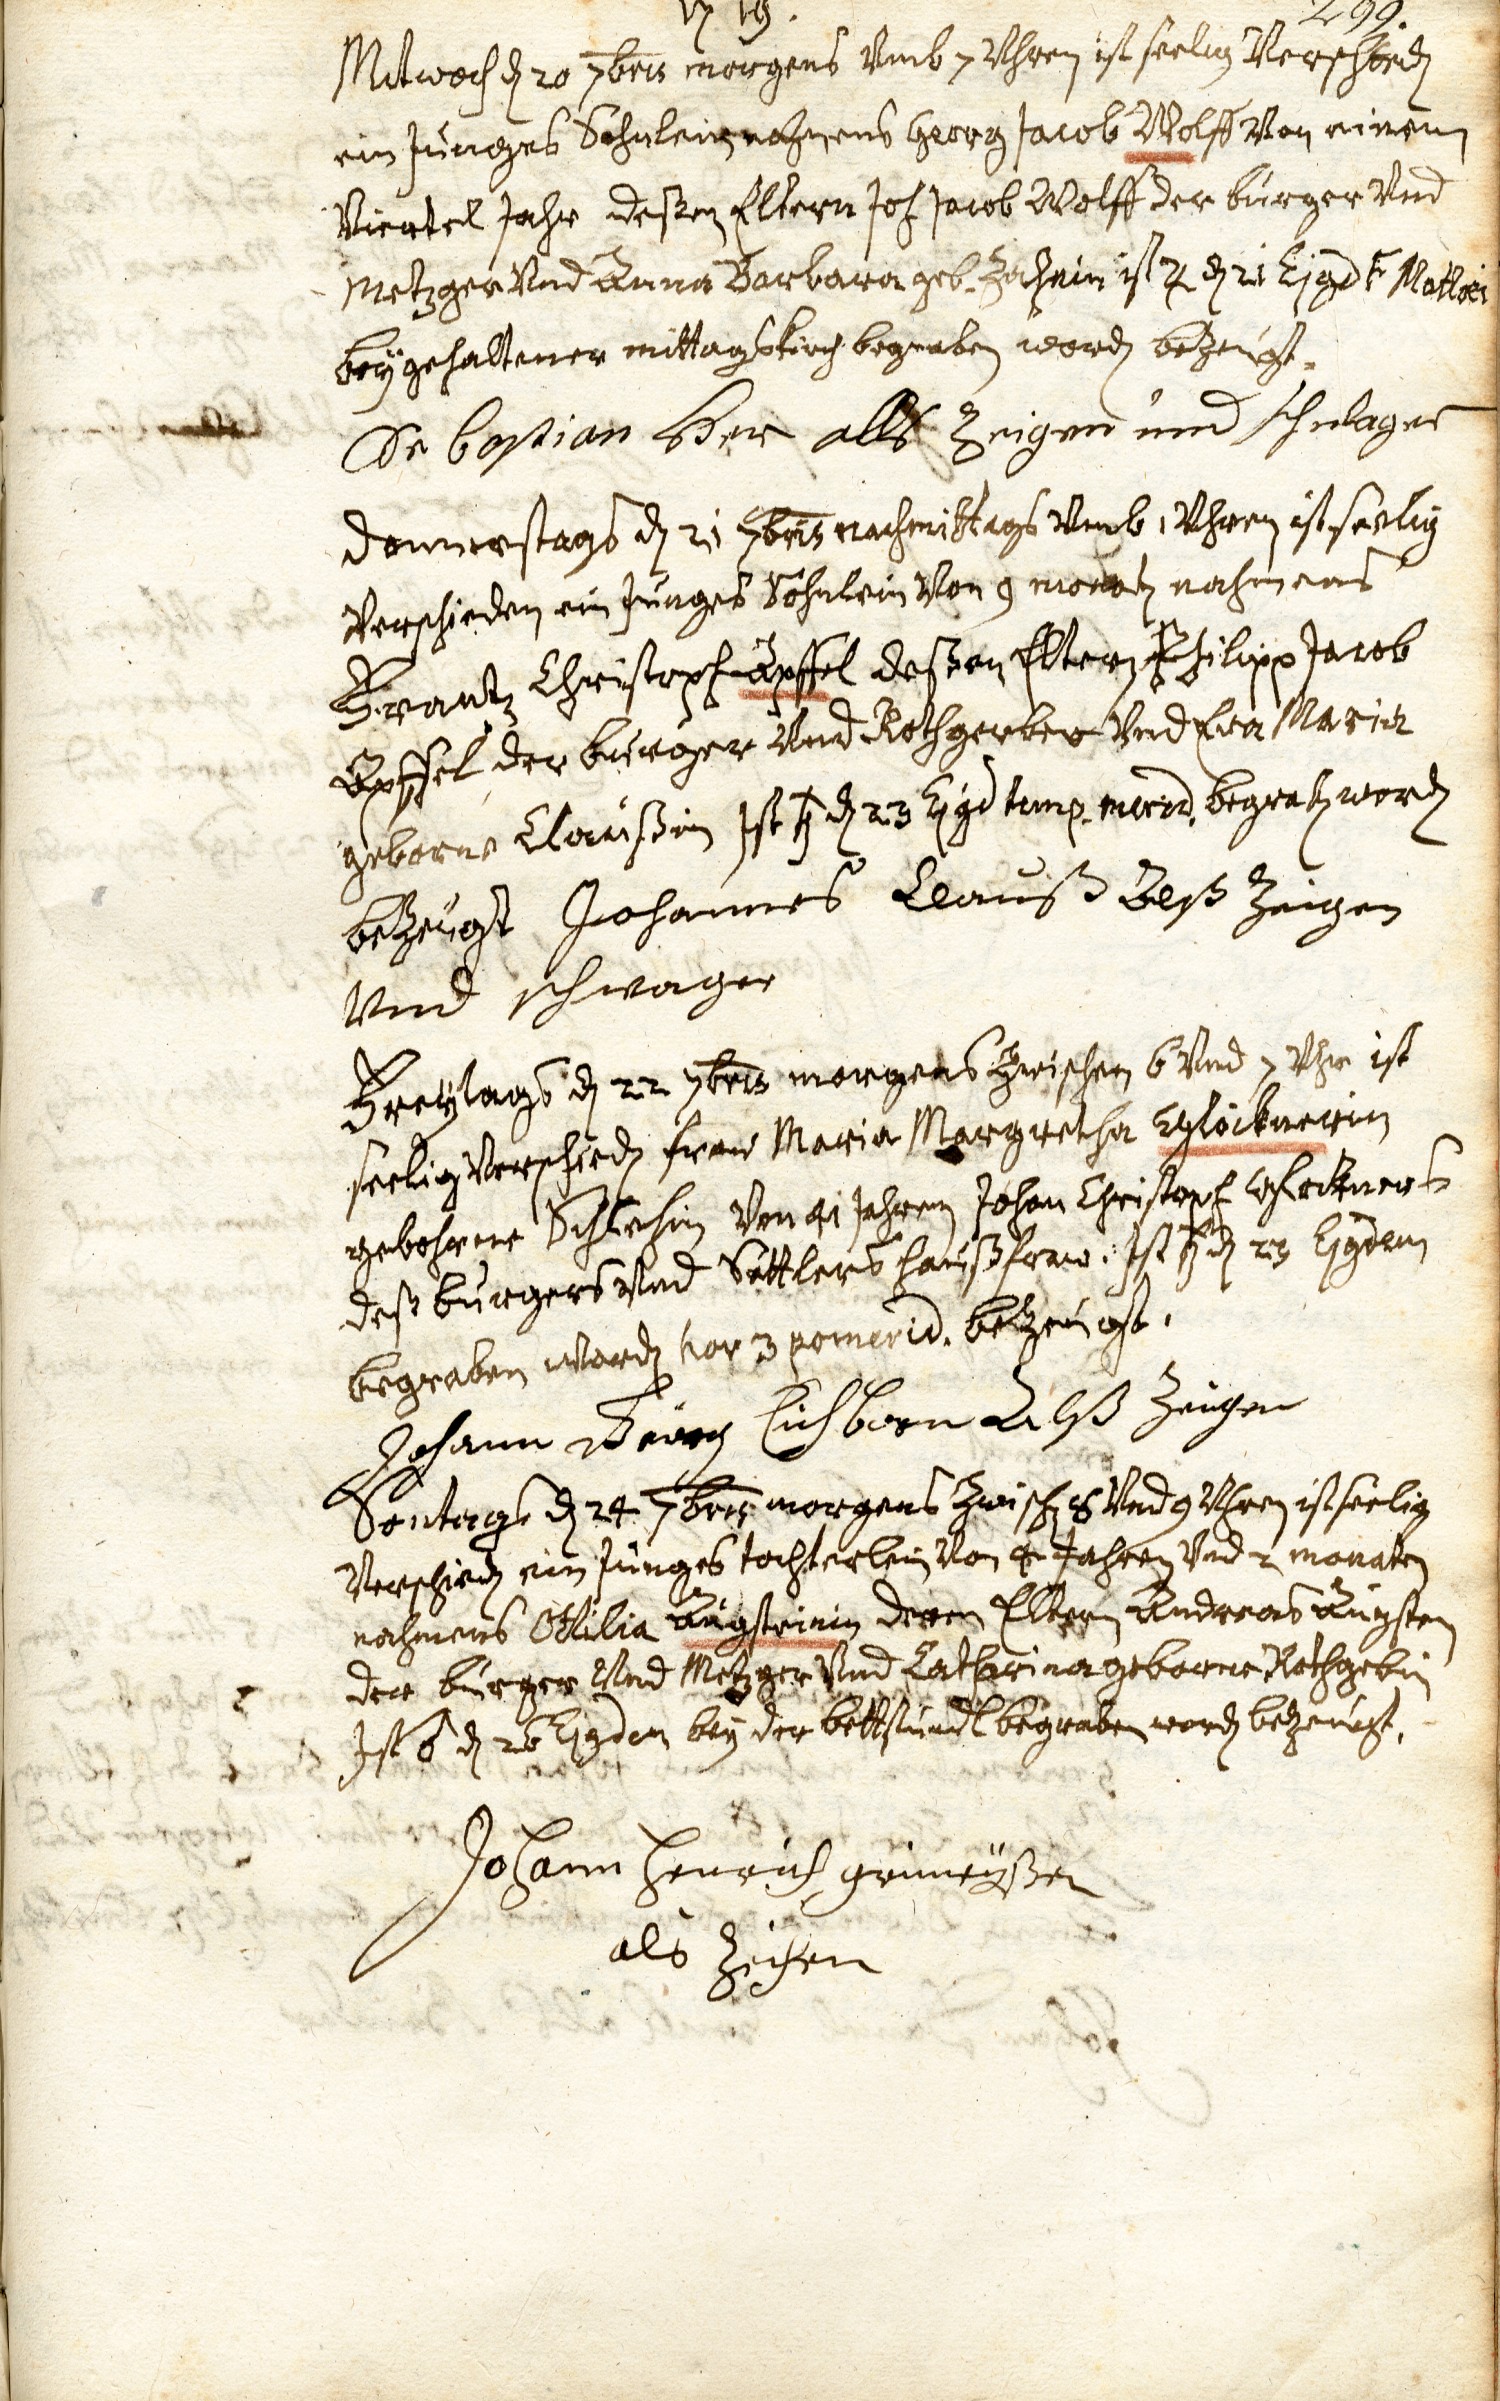 1719. 299.
Mitwoch dn 20 7bris morgens Vmb 7 Vhren ist seelig Verschiedn
ein Junges Söhnlein nahmens Georg Jacob Wolff Von einem
Viertel Jahr deßen Eltern Joh Jacob Wolff der burger Vnd
Metzger Vnd Anna Barbara geb. ist ♃ dn 21 Ejusd F Matthaei
beÿ gehaltener mittagskirch begraben wordn betzeugt.
Sebastian alls Zeigen und schwager
donnerstags dn 21 7bris nachmittags Vmb 1 Vhren ist seelig
Verschieden ein Junges Söhnlein Von 9 monatn nahmens
Frantz Christoph Äpffel deßen Eltern Philipp Jacob
Äpffel der burger Vnd Rothgerber Vnd Eva Maria
geborne Claußin Ist ♄ dn 23 Ejusd temp. merid. begrabn wordn
betzeugt Johannes Clauß Alß Zeigen
Vnd schwager
Freÿtags dn 22 7bris morgens Zwischen 6 Vnd 7 Vhr ist
seelig Verschiedn fraw Maria Margretha Glöcknerin
gebohrne Von 41 Jahren Johan Christoph Glöckners
deß burgers Vnd Sattlers haußfraw. Ist ♄ dn 23 Ejusdem
begraben wordn hor 3 pomerid. betzeugt.
Johann Görg Eichborn Alß Zeugen
Sontags dn 24 7bris morgens Zwischn 8 Vnd 9 Vhren ist seelig
Verschiedn ein Junges tochterlein Von 4 Jahren Vnd 2 monaten
nahmens Ottilia Augsteinin deren Eltern Andreas Augstein
der burger Vnd Metzger Vnd Catharina geborne Rothgebin
Ist dn 26 Ejusdem beÿ der bettstund begraben wordn betzeugt.
Johann Henrich
als Zeichen